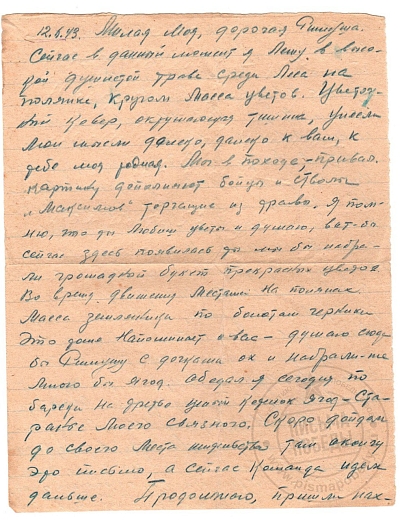 12.6.43. Милая моя, дорогая Риммуша.
Сейчас в данный момент я лежу в высо-
кой душистой траве среди леса на
полянке, кругом масса цветов. Цветоч-
ный ковер, окружающая тишина, унесли
мои мысли далеко, далеко к вам, к
тебе моя родная. Мы в походе-привал.
картину дополняют бойцы и стволы
"Максимов" торчащие из травы. Я пом-
ню, что ты любишь цветы и думаю, вот-бы
сейчас здесь появилась ты мы бы набра-
ли громадный букет прекрасных цветов
Во время движения местами на полянах
масса земленицы по болотам черники
Это даже напоминает о вас- думаю сюда
бы Риммушу с дочками ох и набрали-бы
много бы ягод. Обедал я сегодня по
на третье целый котелок ягод-ста-
рание моего связного. Скоро дойдем
до своего места там окончу
это письмо, а сейчас команда идем
дальше. Продолжаю, пришли нах-